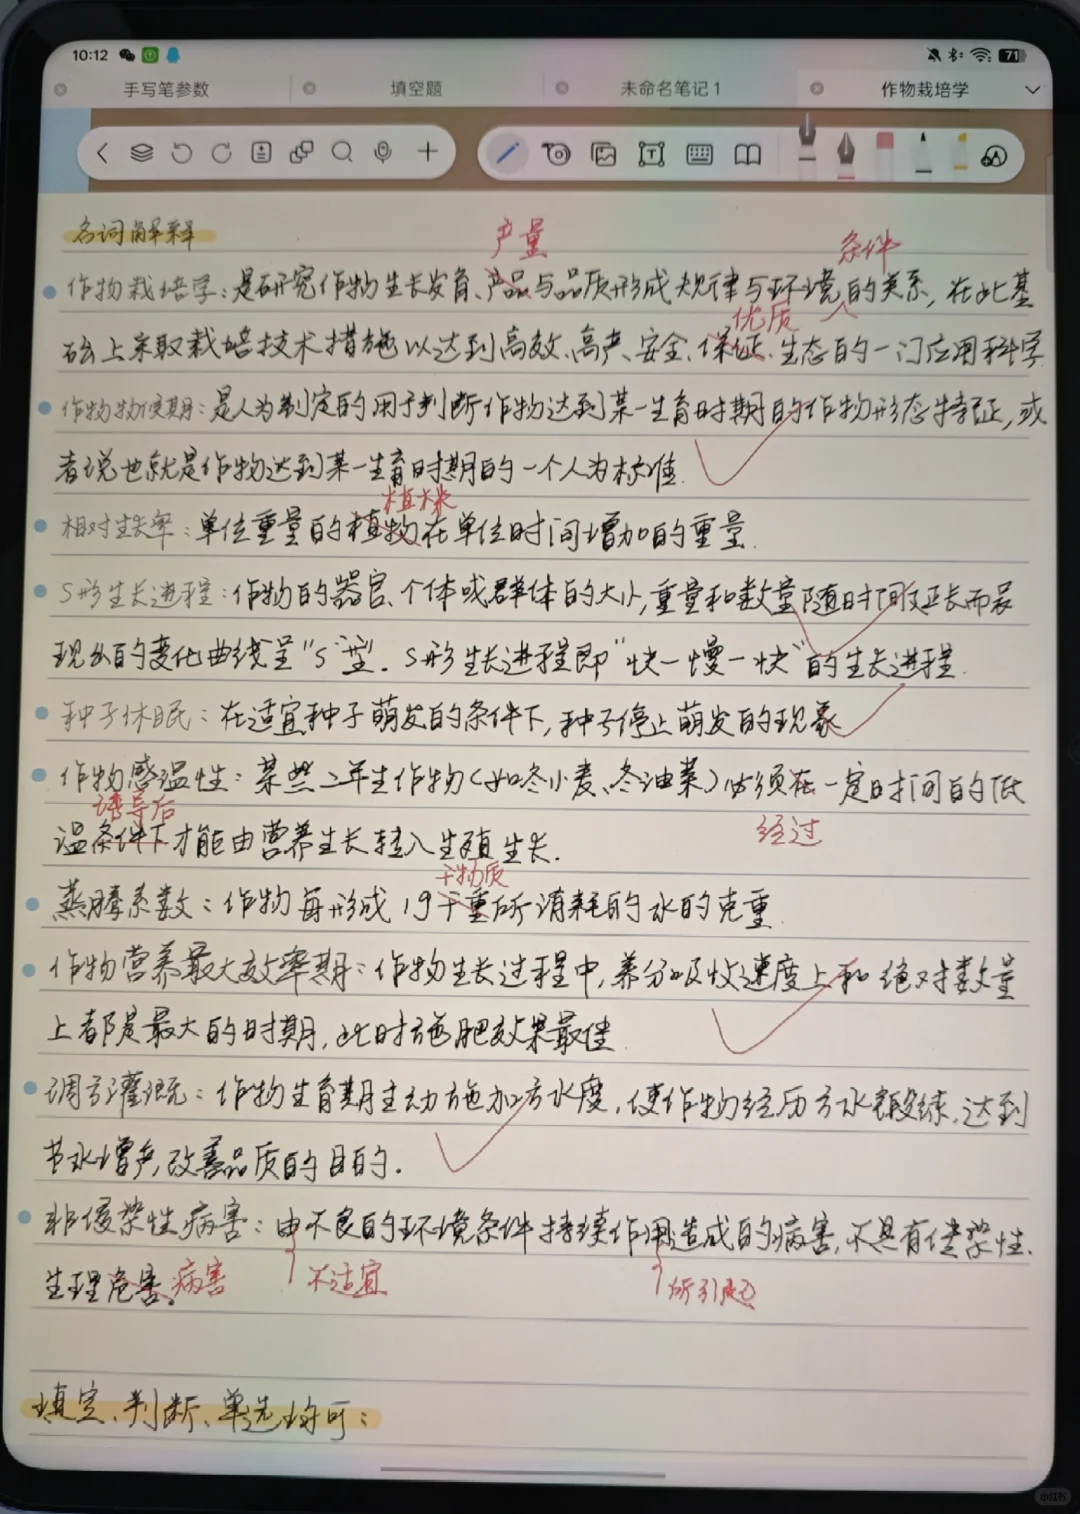 10:12
71
手写笔参数 填空题 未命名笔记1 作物栽培学
名词解释
产量 条件
作物栽培学：是研究作物生长发育、产品与品质形成规律与环境的关系，在此基
优质
础上采取栽培技术措施以达到高效、高产、安全、保证、生态的一门应用科学
作物物候期：是人为制定的用于判断作物达到某一生育时期的作物形态特征，或
者说也就是作物达到某一生育时期的一个人为标准.
植株
相对生长率：单位重量的植物在单位时间增加的重量.
S形生长进程：作物的器官、个体或群体的大小，重量和数量随时间延长而表
现出的变化曲线呈"S"型. S形生长进程即"快—慢—快"的生长进程.
种子休眠：在适宜种子萌发的条件下，种子停止萌发的现象
作物感温性：某些二年生作物(如冬小麦、冬油菜)必须在一定时间的低
诱导后 经过
温条件下才能由营养生长转入生殖生长.
干物质
蒸腾系数：作物每形成1g干重所消耗的水的克重.
作物营养最大效率期：作物生长过程中，养分吸收速度上和绝对数量
上都是最大的时期，此时施肥效果最佳.
调亏灌溉：作物生育期主动施加亏水度，使作物经历亏水锻练，达到
节水增产，改善品质的目的.
非侵染性病害：由不良的环境条件持续作用造成的病害，不具有侵染性.
生理危害。病害 不适宜 所引起
填空、判断、单选均可：
小红书